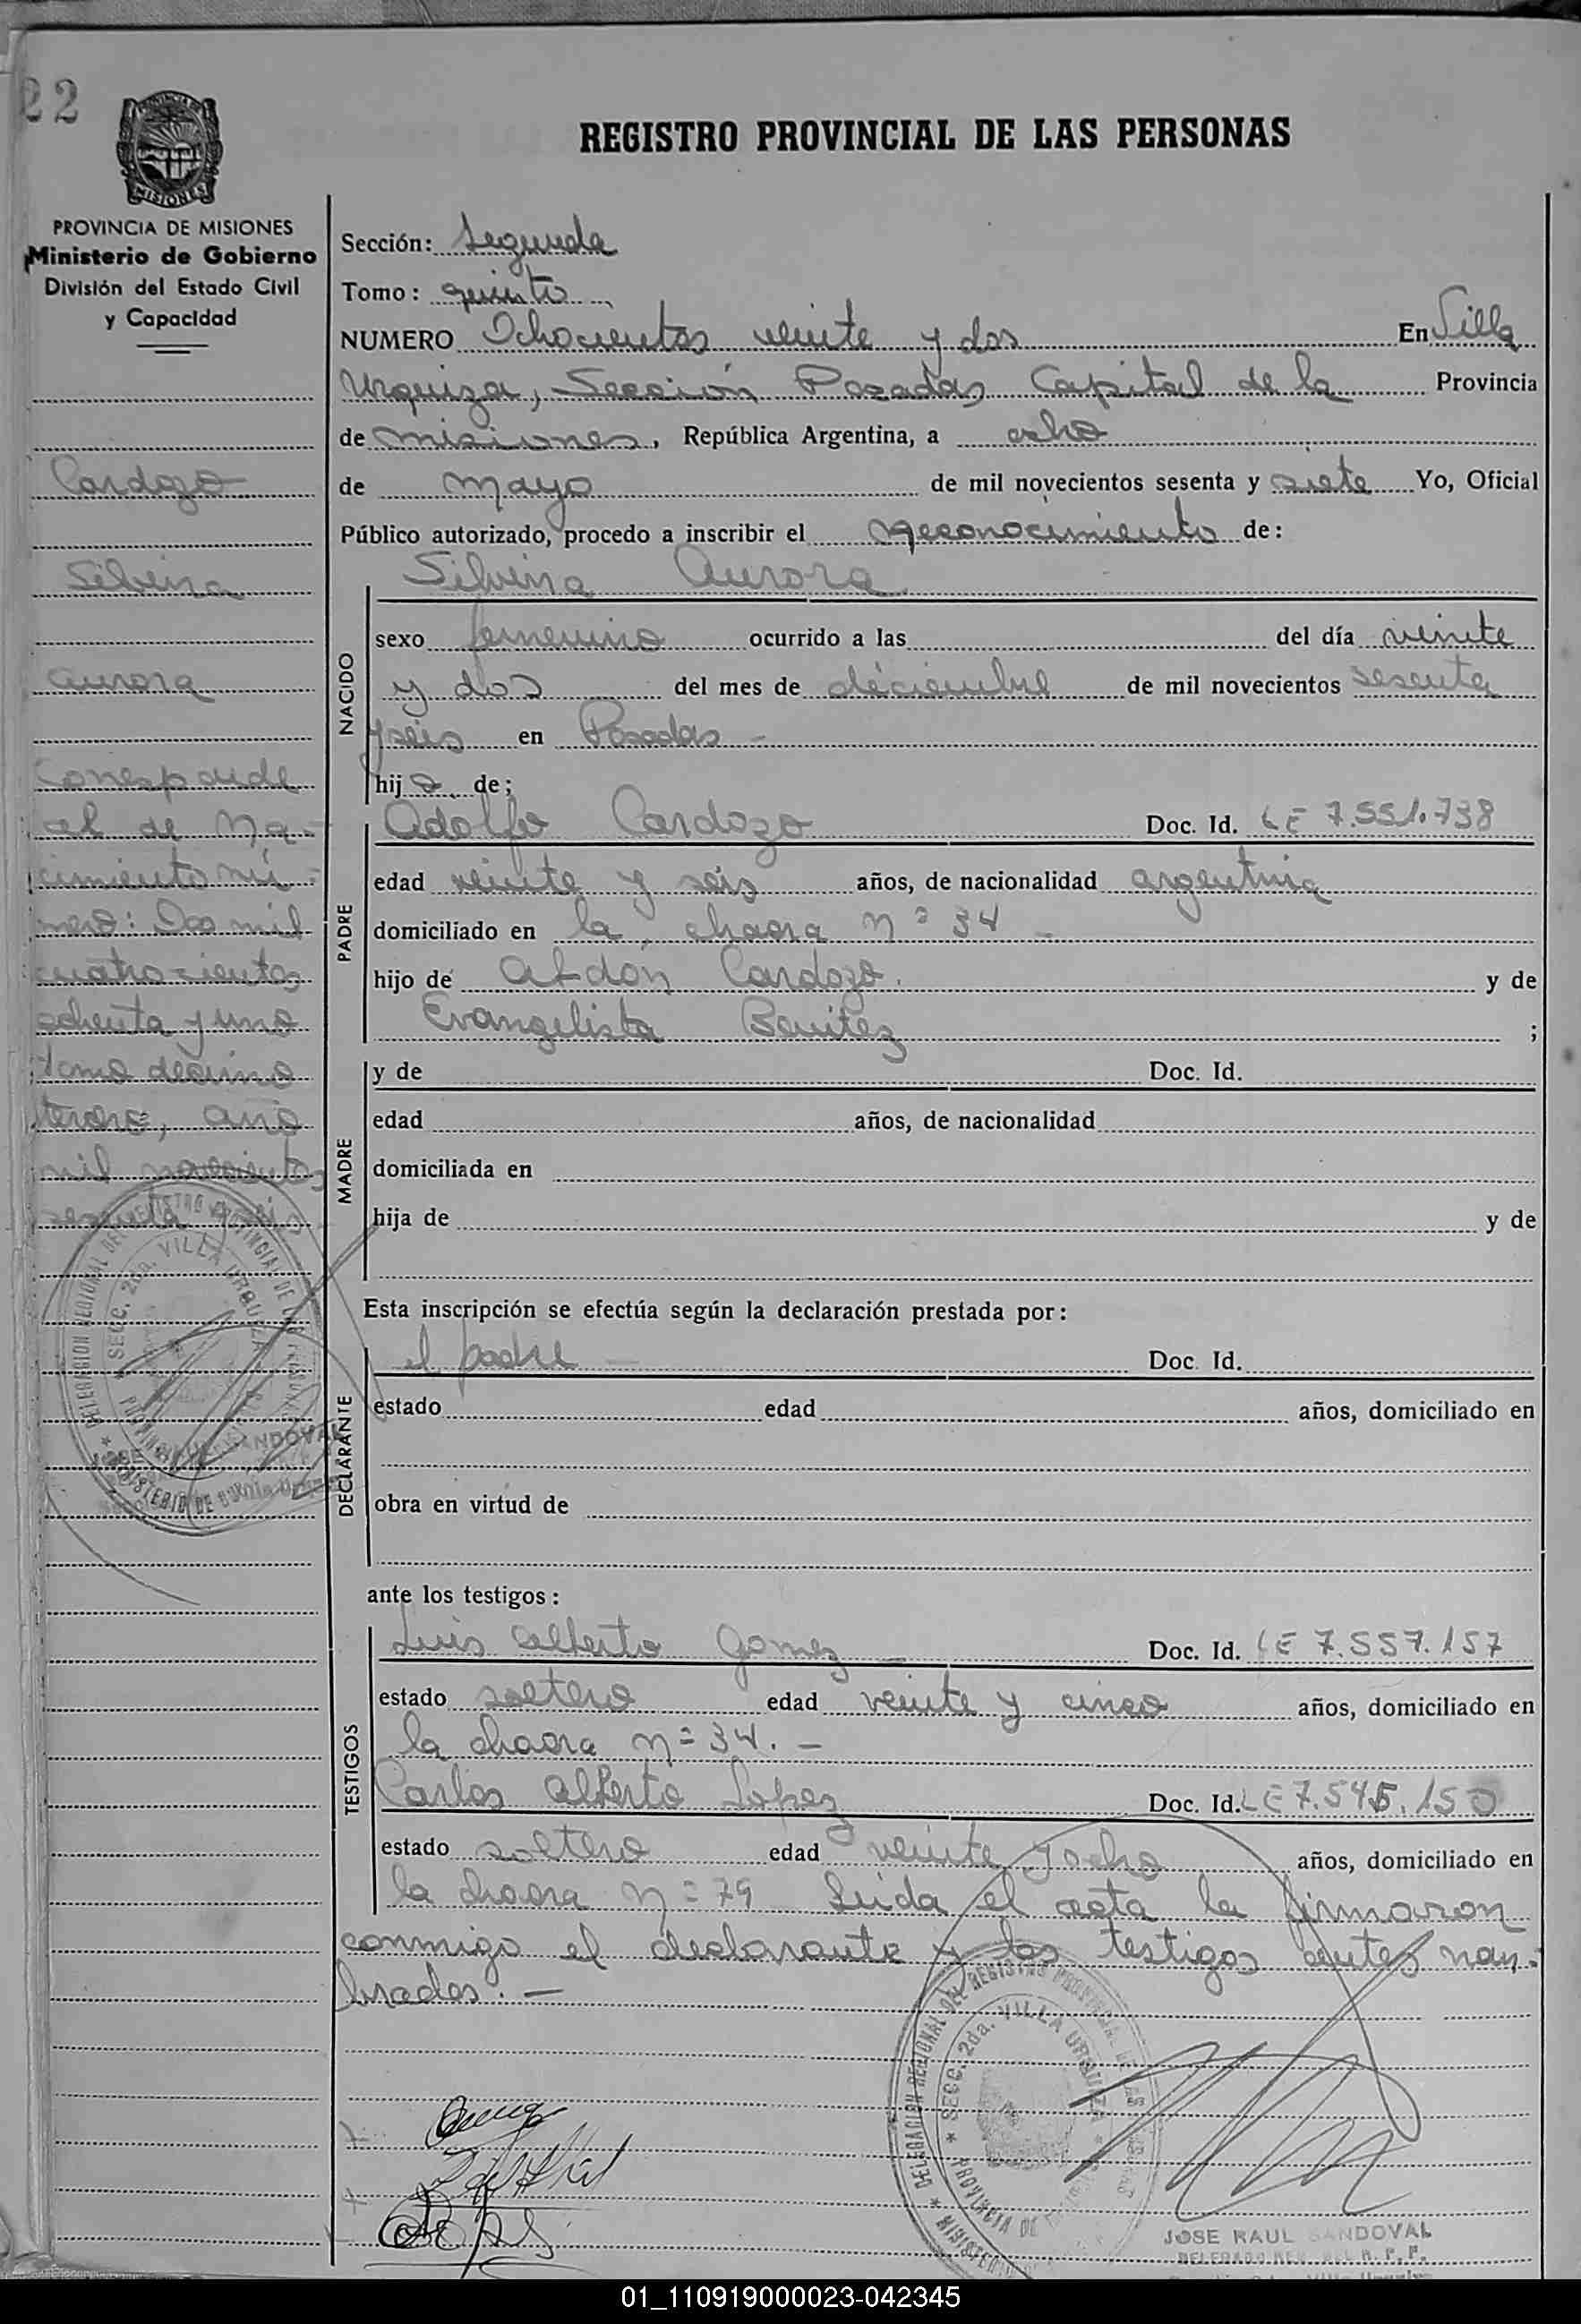 22
REGISTRO PROVINCIAL DE LAS PERSONAS
MISIONES
PROVINCIA DE MISIONES
Ministerio de Gobierno
División del Estado Civil
y Capacidad
Cardozo
Silvina
Aurora
Corresponde
al de Na-
cimiento nú-
mero: Dos mil
cuatrocientos
ochenta y uno
tomo decimo
tercero, año
mil novecientos
sesenta y seis
Sección: Segunda
Tomo: quinto
NUMERO Ochocientos veinte y dos En Villa
Urquiza, Sección Posadas Capital de la Provincia
de misiones, República Argentina, a ocho
de mayo de mil novecientos sesenta y siete Yo, Oficial
Público autorizado, procedo a inscribir el reconocimiento de:
NACIDO
Silvina Aurora
sexo femenino ocurrido a las del día veinte
y dos del mes de diciembre de mil novecientos sesenta
y seis en Posadas -
hija de;
PADRE
Adolfo Cardozo Doc. Id. LE 7.551.738
edad veinte y seis años, de nacionalidad argentina
domiciliado en la chacra nº 34 -
hijo de Abdón Cardozo. y de
Evangelista Benitez ;
MADRE
y de Doc. Id.
edad años, de nacionalidad
domiciliada en
hija de y de
Esta inscripción se efectúa según la declaración prestada por:
DECLARANTE
el padre - Doc. Id.
estado edad años, domiciliado en
obra en virtud de
ante los testigos:
TESTIGOS
Luis Alberto Gomez - Doc. Id. LE 7.557.157
estado soltero edad veinte y cinco años, domiciliado en
la chacra nº 34. -
Carlos Alberto Lopez Doc. Id. LE 7.545.150
estado soltero edad veinte y ocho años, domiciliado en
la chacra nº 79 Leida el acta la firmaron
conmigo el declarante y los testigos antes nom-
brados. -
DELEGACION REGIONAL DEL REGISTRO PROVINCIAL DE LAS PERSONAS
SECC. 2da. VILLA URQUIZA
PROVINCIA DE
JOSE RAUL SANDOVAL
01_110919000023-042345